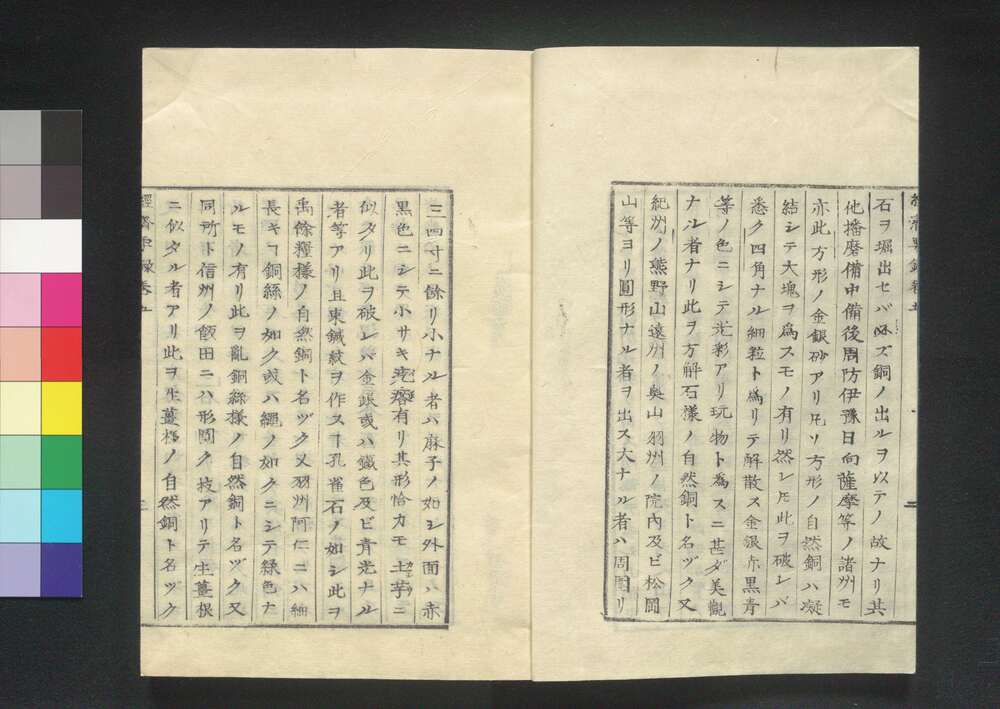 石ヲ堀出セバ必ズ銅ノ出ルヲ以テノ故ナリ其
他播磨備中備後周防伊豫日向薩摩等ノ諸州モ
亦此方形ノ金銀砂アリ凡ソ方形ノ自然銅ハ凝
結シテ大塊ヲ爲スモノ有リ然レ𪜈此ヲ破レバ
悉ク四角ナル細粒ト爲リテ解散ス金銀赤黒青
等ノ色ニシテ光彩アリ玩物ト爲スニ甚ダ美觀
ナル者ナリ此ヲ方解石漾ノ自然銅ト名ヅク又
紀洲ノ熊野山遠州ノ奥山羽洲ノ院内及ビ松岡
山等ヨリ圓形ナル者ヲ出ス大ナル者ハ周圍リ
三四寸ニ餘リ小ナル者ハ麻子ノ如シ外面ハ赤
黒色ニシテ小サキ疙瘩有リ其形恰カモ土芋ニ
似タリ此ヲ破レバ金銀或ハ鐵色及ビ青光ナル
者等アリ且束鍼紋ヲ作スヿ孔雀石ノ如シ此ヲ
禹餘糧様ノ自然銅ト名ヅク又羽州阿仁ニハ細
長キヿ銅絲ノ如ク或ハ繩ノ如クニシテ緑色ナ
ルモノ有リ此ヲ亂銅絲様ノ自然銅ト名ヅク又
同所ト信州ノ飯田ニハ形圓ク技アリテ生薑根
ニ似タル者アリ此ヲ生薑様ノ自然銅ト名ヅク